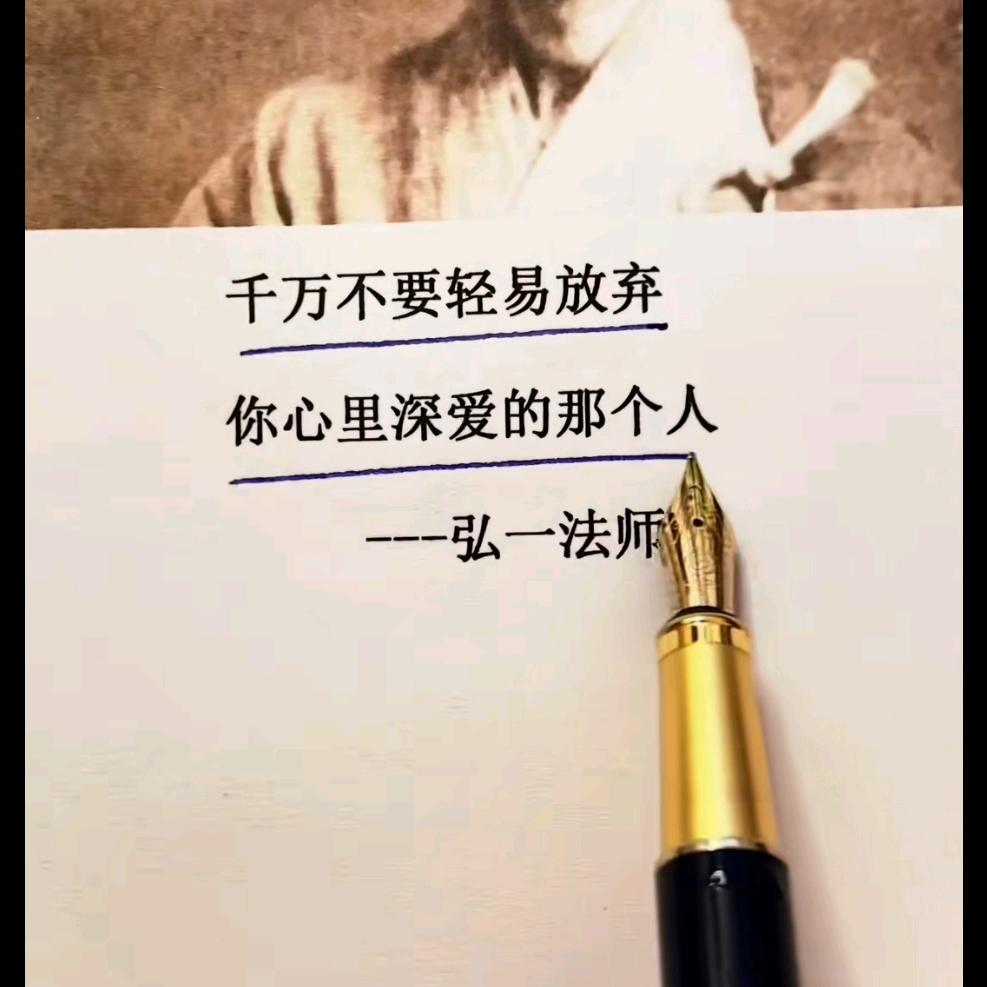 千万不要轻易放弃
你心里深爱的那个人
---弘一法师